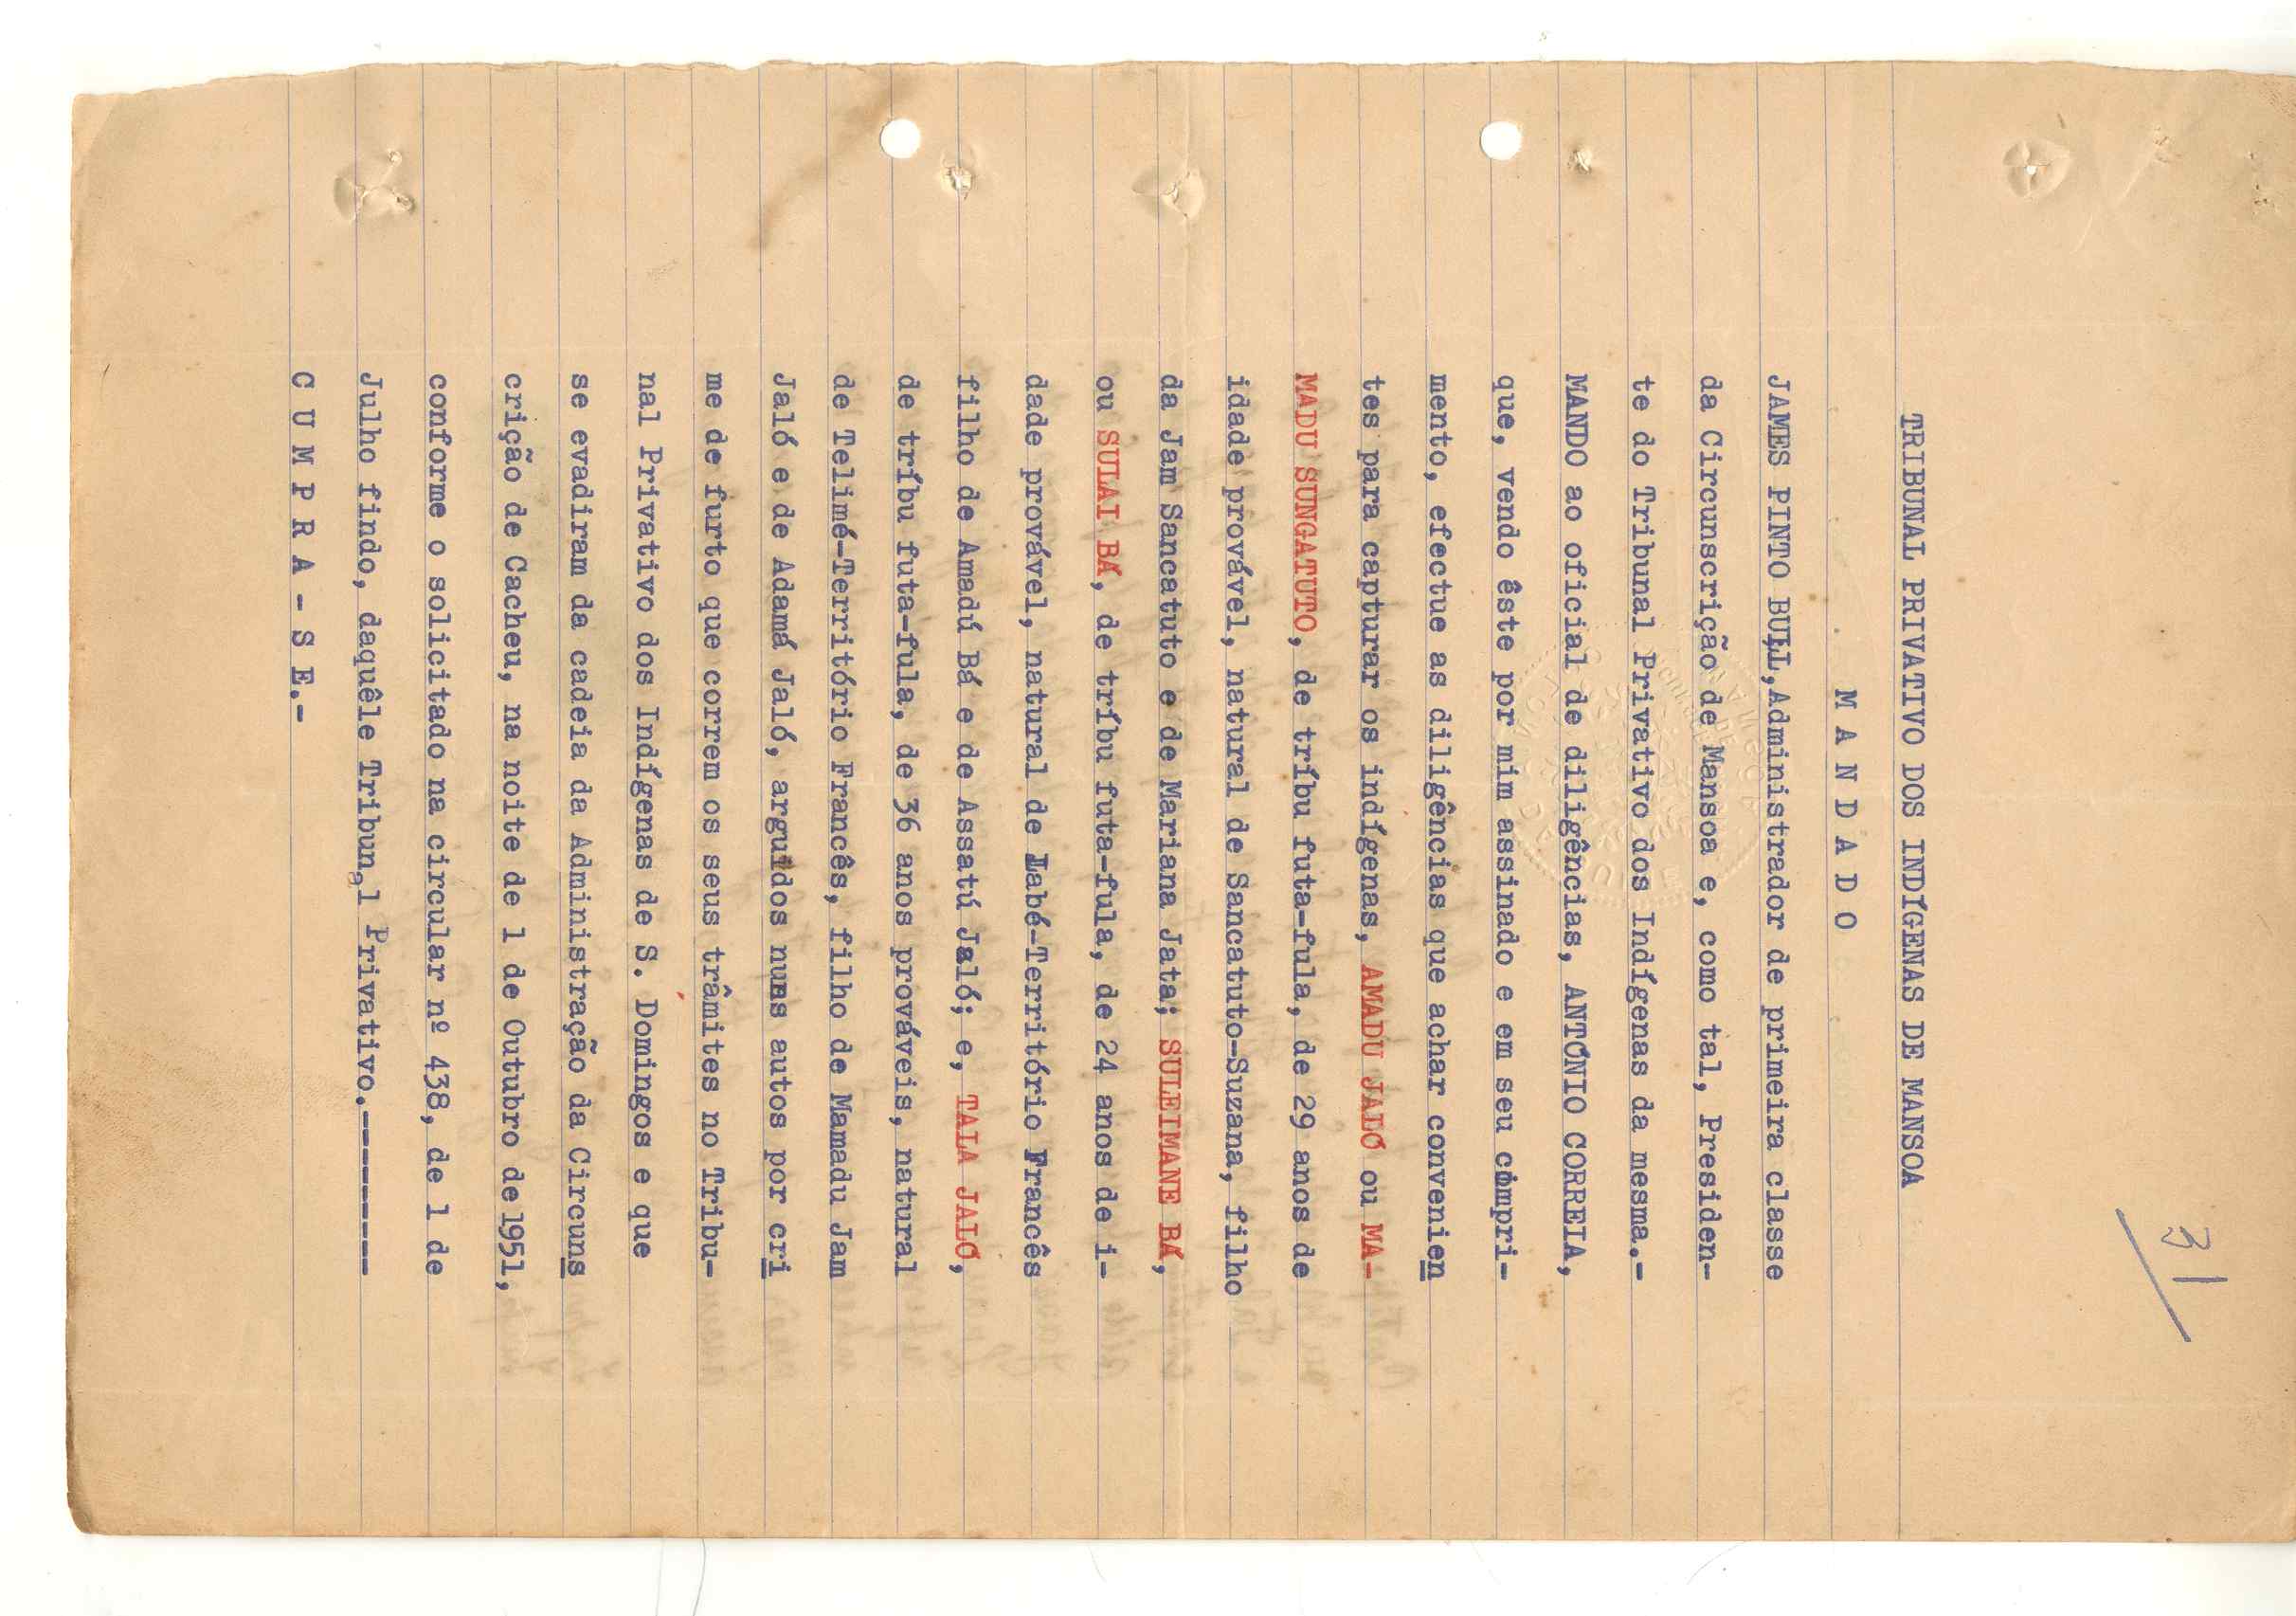 31
TRIBUNAL PRIVATIVO DOS INDÍGENAS DE MANSOA
M A N D A D O
JAMES PINTO BULL, Administrador de primeira classe
da Circunscrição de Mansoa e, como tal, Presiden-
te do Tribunal Privativo dos Indígenas da mesma.-
MANDO ao oficial de diligências, ANTÓNIO CORREIA,
que, vendo êste por mim assinado e em seu cumpri-
mento, efectue as diligências que achar convenien
tes para capturar os indígenas, AMADU JALÓ ou MA-
MADU SUNGATUTO, de tríbu futa-fula, de 29 anos de
idade provável, natural de Sancatuto-Suzana, filho
da Jam Sancatuto e de Mariana Jata; SULEIMANE BÁ,
ou SULAI BÁ, de tríbu futa-fula, de 24 anos de i-
dade provável, natural de Labé-Território Francês
filho de Amadú Bá e de Assatú Jaló; e, TALA JALÓ,
de tríbu futa-fula, de 36 anos prováveis, natural
de Telimé-Território Francês, filho de Mamadu Jam
Jaló e de Adamá Jaló, arguidos nuns autos por cri
me de furto que correm os seus trâmites no Tribu-
nal Privativo dos Indígenas de S. Domingos e que
se evadiram da cadeia da Administração da Circuns
crição de Cacheu, na noite de 1 de Outubro de 1951,
conforme o solicitado na circular nº 438, de 1 de
Julho findo, daquêle Tribunal Privativo.---------
C U M P R A - S E.-